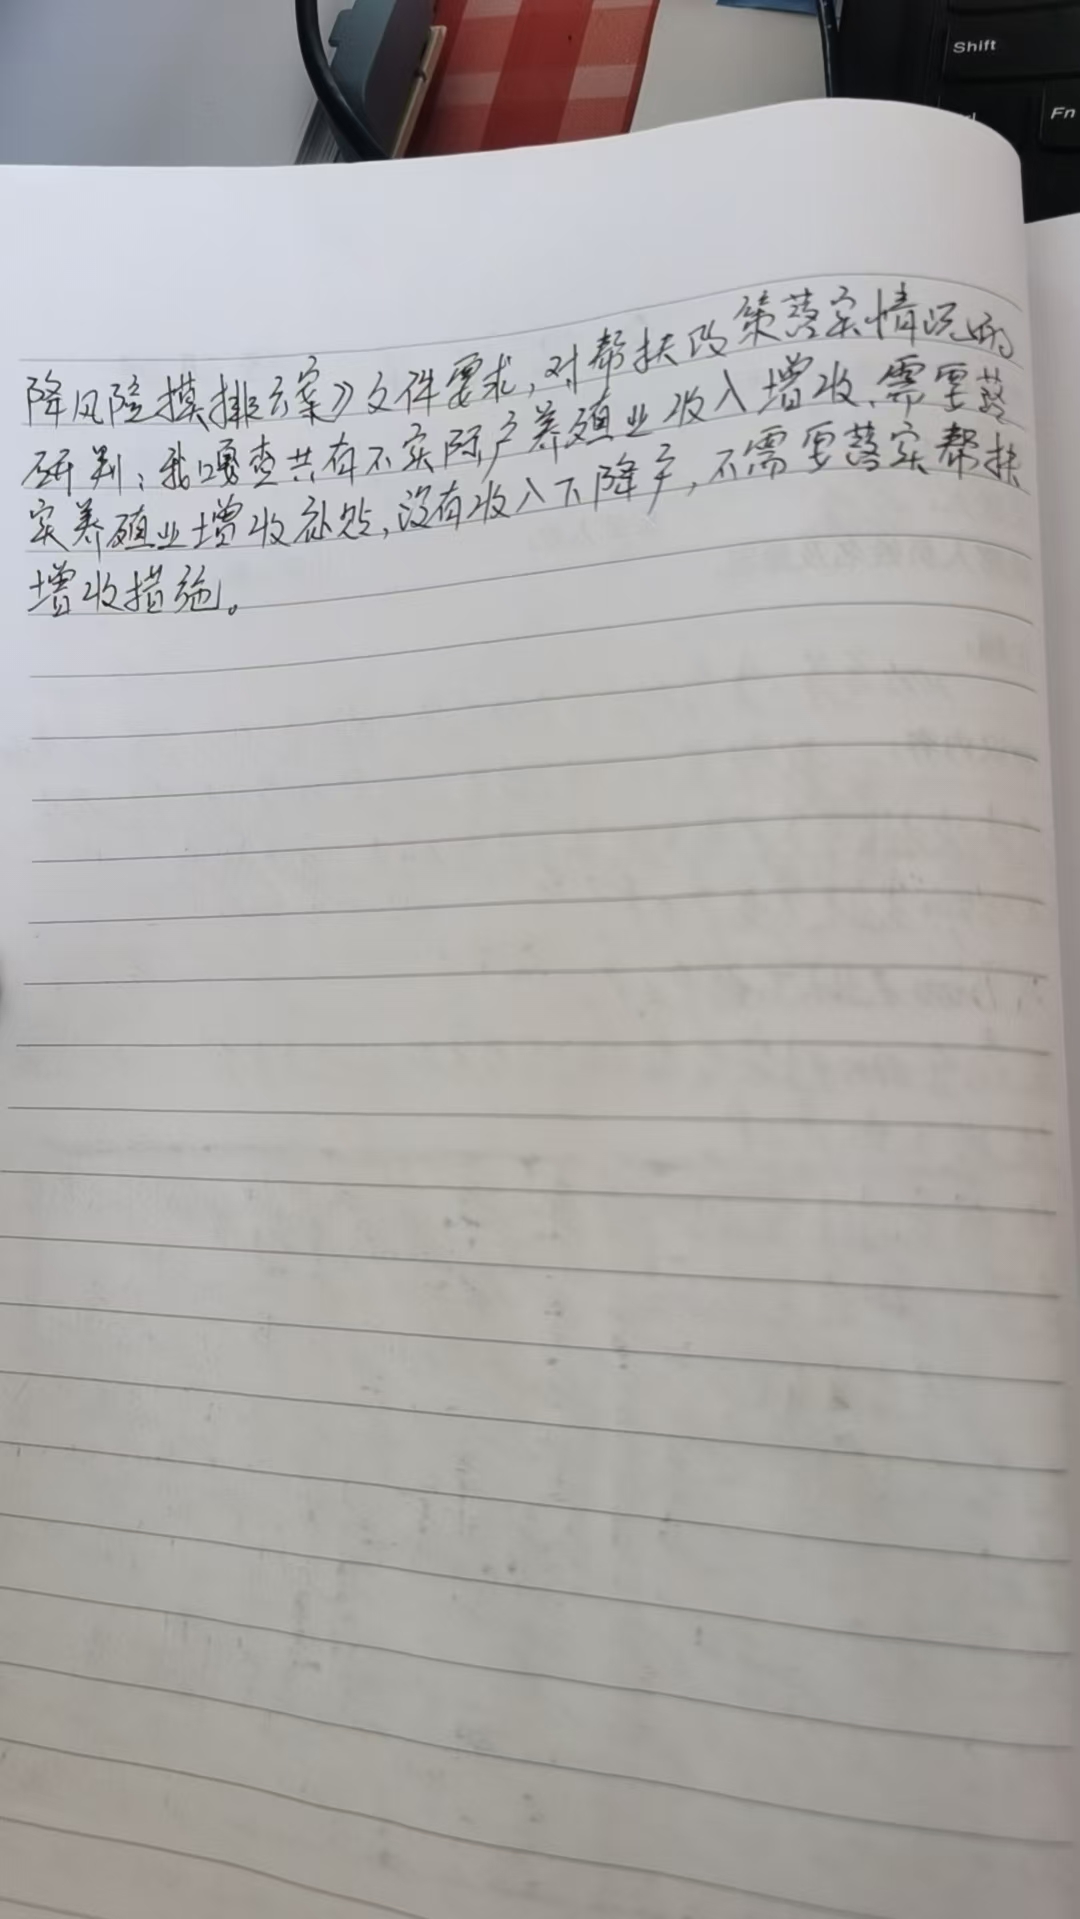 Shift
Fn
降风险摸排方案》文件要求,对帮扶政策落实情况的
研判:我嘎查共有不实际户养殖业收入增收、需要落
实养殖业增收补贴,没有收入下降户,不需要落实帮扶
增收措施。